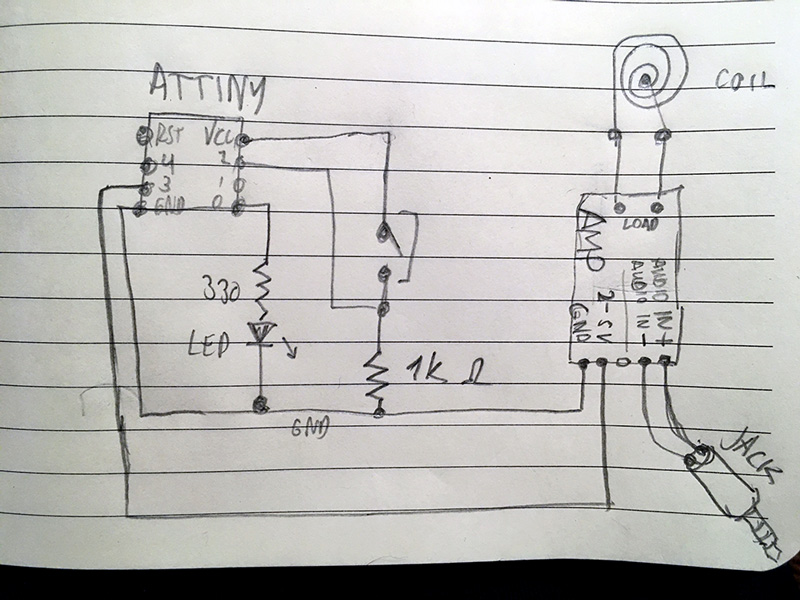 ATTINY
COIL
RST VCC
4 2
3 1
GND 0
AMP
LOAD
330
LED
1K Ω
GND
GND
2-5V
AUDIO IN-
AUDIO IN+
JACK